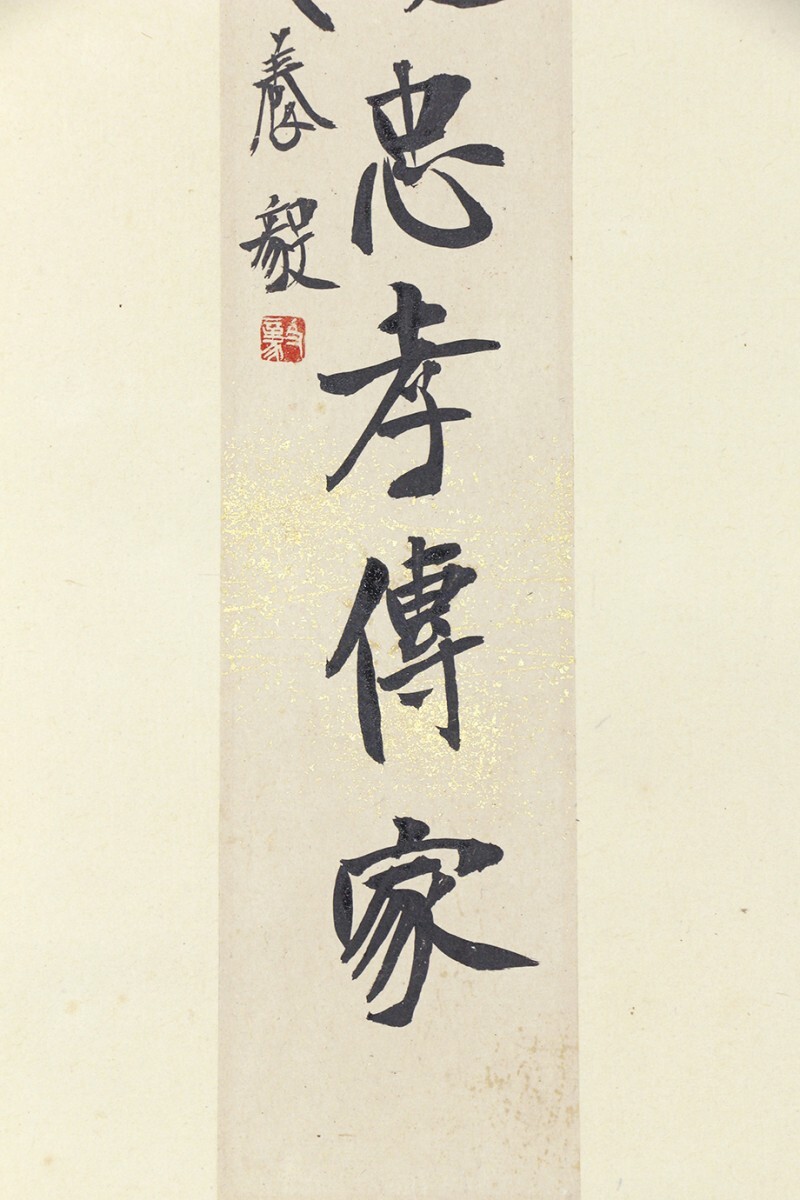 忠孝傳家
養毅